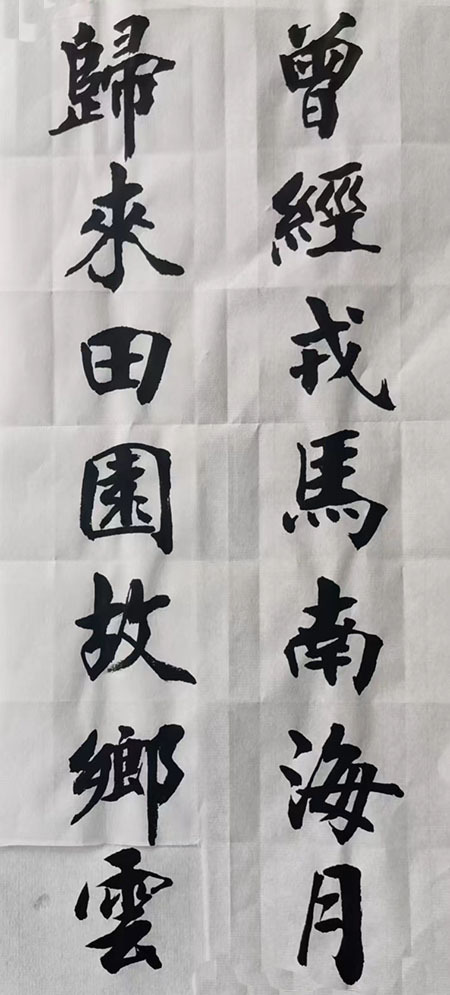 曾經戎馬南海月
歸來田園故鄉雲